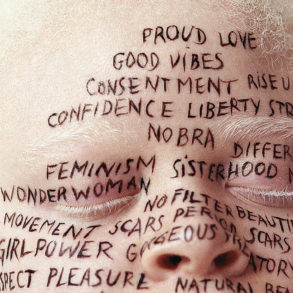 PROUD LOVE
GOOD VIBES
CONSENTMENT RISE U
CONFIDENCE LIBERTY STR
NO BRA
DIFFER
FEMINISM SISTERHOOD
WONDERWOMAN NO FILTER BEAUTI
MOVEMENT SCARS PERIOD SCARS
GIRLPOWER GORGEOUS ATORY
SPECT PLEASURE NATURAL BEA